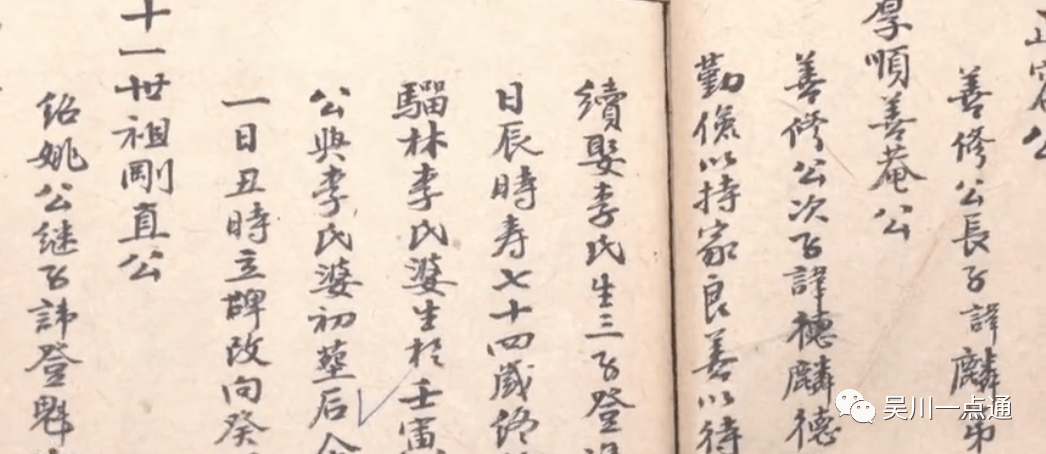 善修公長子諱麟弟
厚順善菴公
善修公次子諱德麟德
勤儉以持家良善以待
續娶李氏生三子登
日辰時寿七十四歲终
騮林李氏婆生於壬寅
公與李氏婆初塟后
一日丑時立碑改向癸
十一世祖剛直公
绍姚公継子諱登魁
吴川一点通